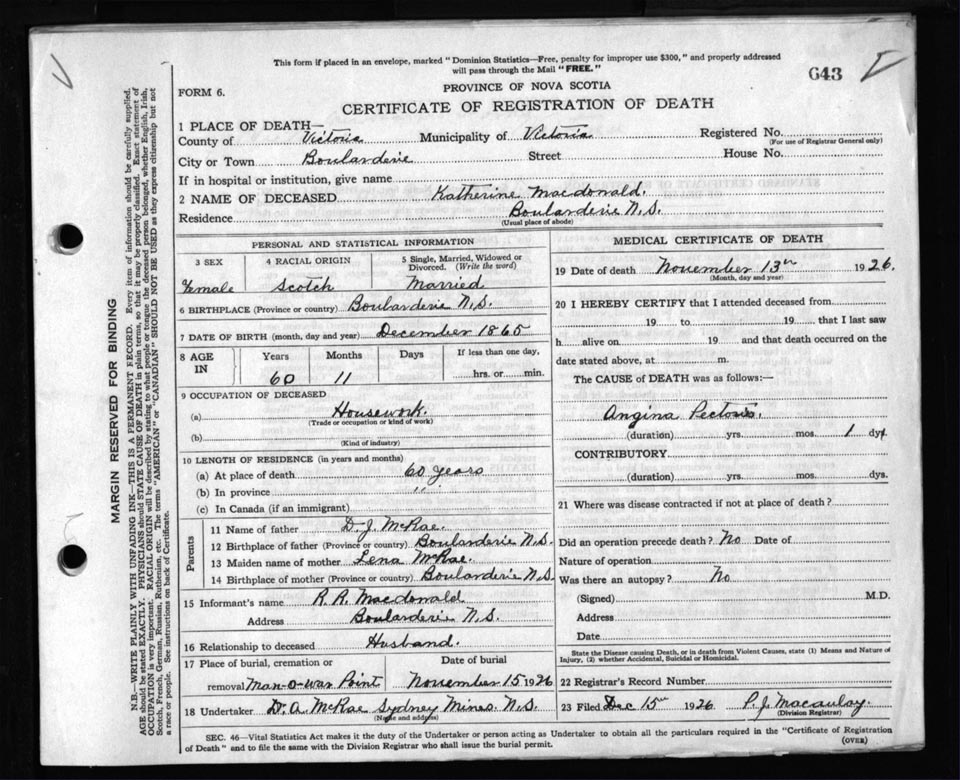 This form if placed in an envelope, marked "Dominion Statistics—Free, penalty for improper use $300," and properly addressed
will pass through the Mail "FREE."
643
FORM 6.
PROVINCE OF NOVA SCOTIA
CERTIFICATE OF REGISTRATION OF DEATH
1 PLACE OF DEATH—
County of Victoria Municipality of Victoria Registered No.
(For use of Registrar General only)
City or Town Boularderie Street House No.
If in hospital or institution, give name
2 NAME OF DECEASED Katherine Macdonald.
Residence Boularderie N.S.
(Usual place of abode)
PERSONAL AND STATISTICAL INFORMATION
3 SEX 4 RACIAL ORIGIN 5 Single, Married, Widowed or
Divorced. (Write the word)
Female Scotch Married
6 BIRTHPLACE (Province or country) Boularderie N.S.
7 DATE OF BIRTH (month, day and year) December 1865
8 AGE IN Years Months Days If less than one day,
60 11 hrs. or min.
9 OCCUPATION OF DECEASED
(a) Housework.
(Trade or occupation or kind of work)
(b)
(Kind of industry)
10 LENGTH OF RESIDENCE (in years and months)
(a) At place of death 60 years
(b) In province "
(c) In Canada (if an immigrant)
Parents
11 Name of father D. J. McRae.
12 Birthplace of father (Province or country) Boularderie N.S.
13 Maiden name of mother Lena McRae.
14 Birthplace of mother (Province or country) Boularderie N.S.
15 Informant's name R. R. Macdonald
Address Boularderie N.S.
16 Relationship to deceased Husband.
17 Place of burial, cremation or Date of burial
removal Man-o-war Point November 15 1926
18 Undertaker D. A. McRae Sydney Mines. N.S.
(Name and address)
MEDICAL CERTIFICATE OF DEATH
19 Date of death November 13th 1926.
(Month, day and year)
20 I HEREBY CERTIFY that I attended deceased from
19 to 19 that I last saw
h alive on 19 and that death occurred on the
date stated above, at m.
The CAUSE of DEATH was as follows:—
Angina Pectoris.
(duration) yrs. mos. 1 dys
CONTRIBUTORY
(duration) yrs. mos. ds.
21 Where was disease contracted if not at place of death?
Did an operation precede death? No Date of
Nature of operation
Was there an autopsy? No
(Signed) M.D.
Address
Date
State the Disease causing Death, or in death from Violent Causes, state (1) Means and Nature of
Injury, (2) whether Accidental, Suicidal or Homicidal.
22 Registrar's Record Number
23 Filed Dec 15th 1926 P. J. Macaulay.
(Division Registrar)
SEC. 46—Vital Statistics Act makes it the duty of the Undertaker or person acting as Undertaker to obtain all the particulars required in the "Certificate of Registration
of Death" and to file the same with the Division Registrar who shall issue the burial permit.
(OVER)
MARGIN RESERVED FOR BINDING
N.B.—WRITE PLAINLY WITH UNFADING INK—THIS IS A PERMANENT RECORD. Every item of information should be carefully supplied.
AGE should be stated EXACTLY. PHYSICIANS should STATE CAUSE OF DEATH in plain terms, so that it may be properly classified. Exact statement of
OCCUPATION is very important. RACIAL ORIGIN will be described by stating to what people or tongue the deceased person belonged, whether English, Irish,
Scotch, French, German, Russian, Ruthenian, etc. The terms "AMERICAN" or "CANADIAN" SHOULD NOT BE USED as they express citizenship but not
a race or people. See instructions on back of Certificate.